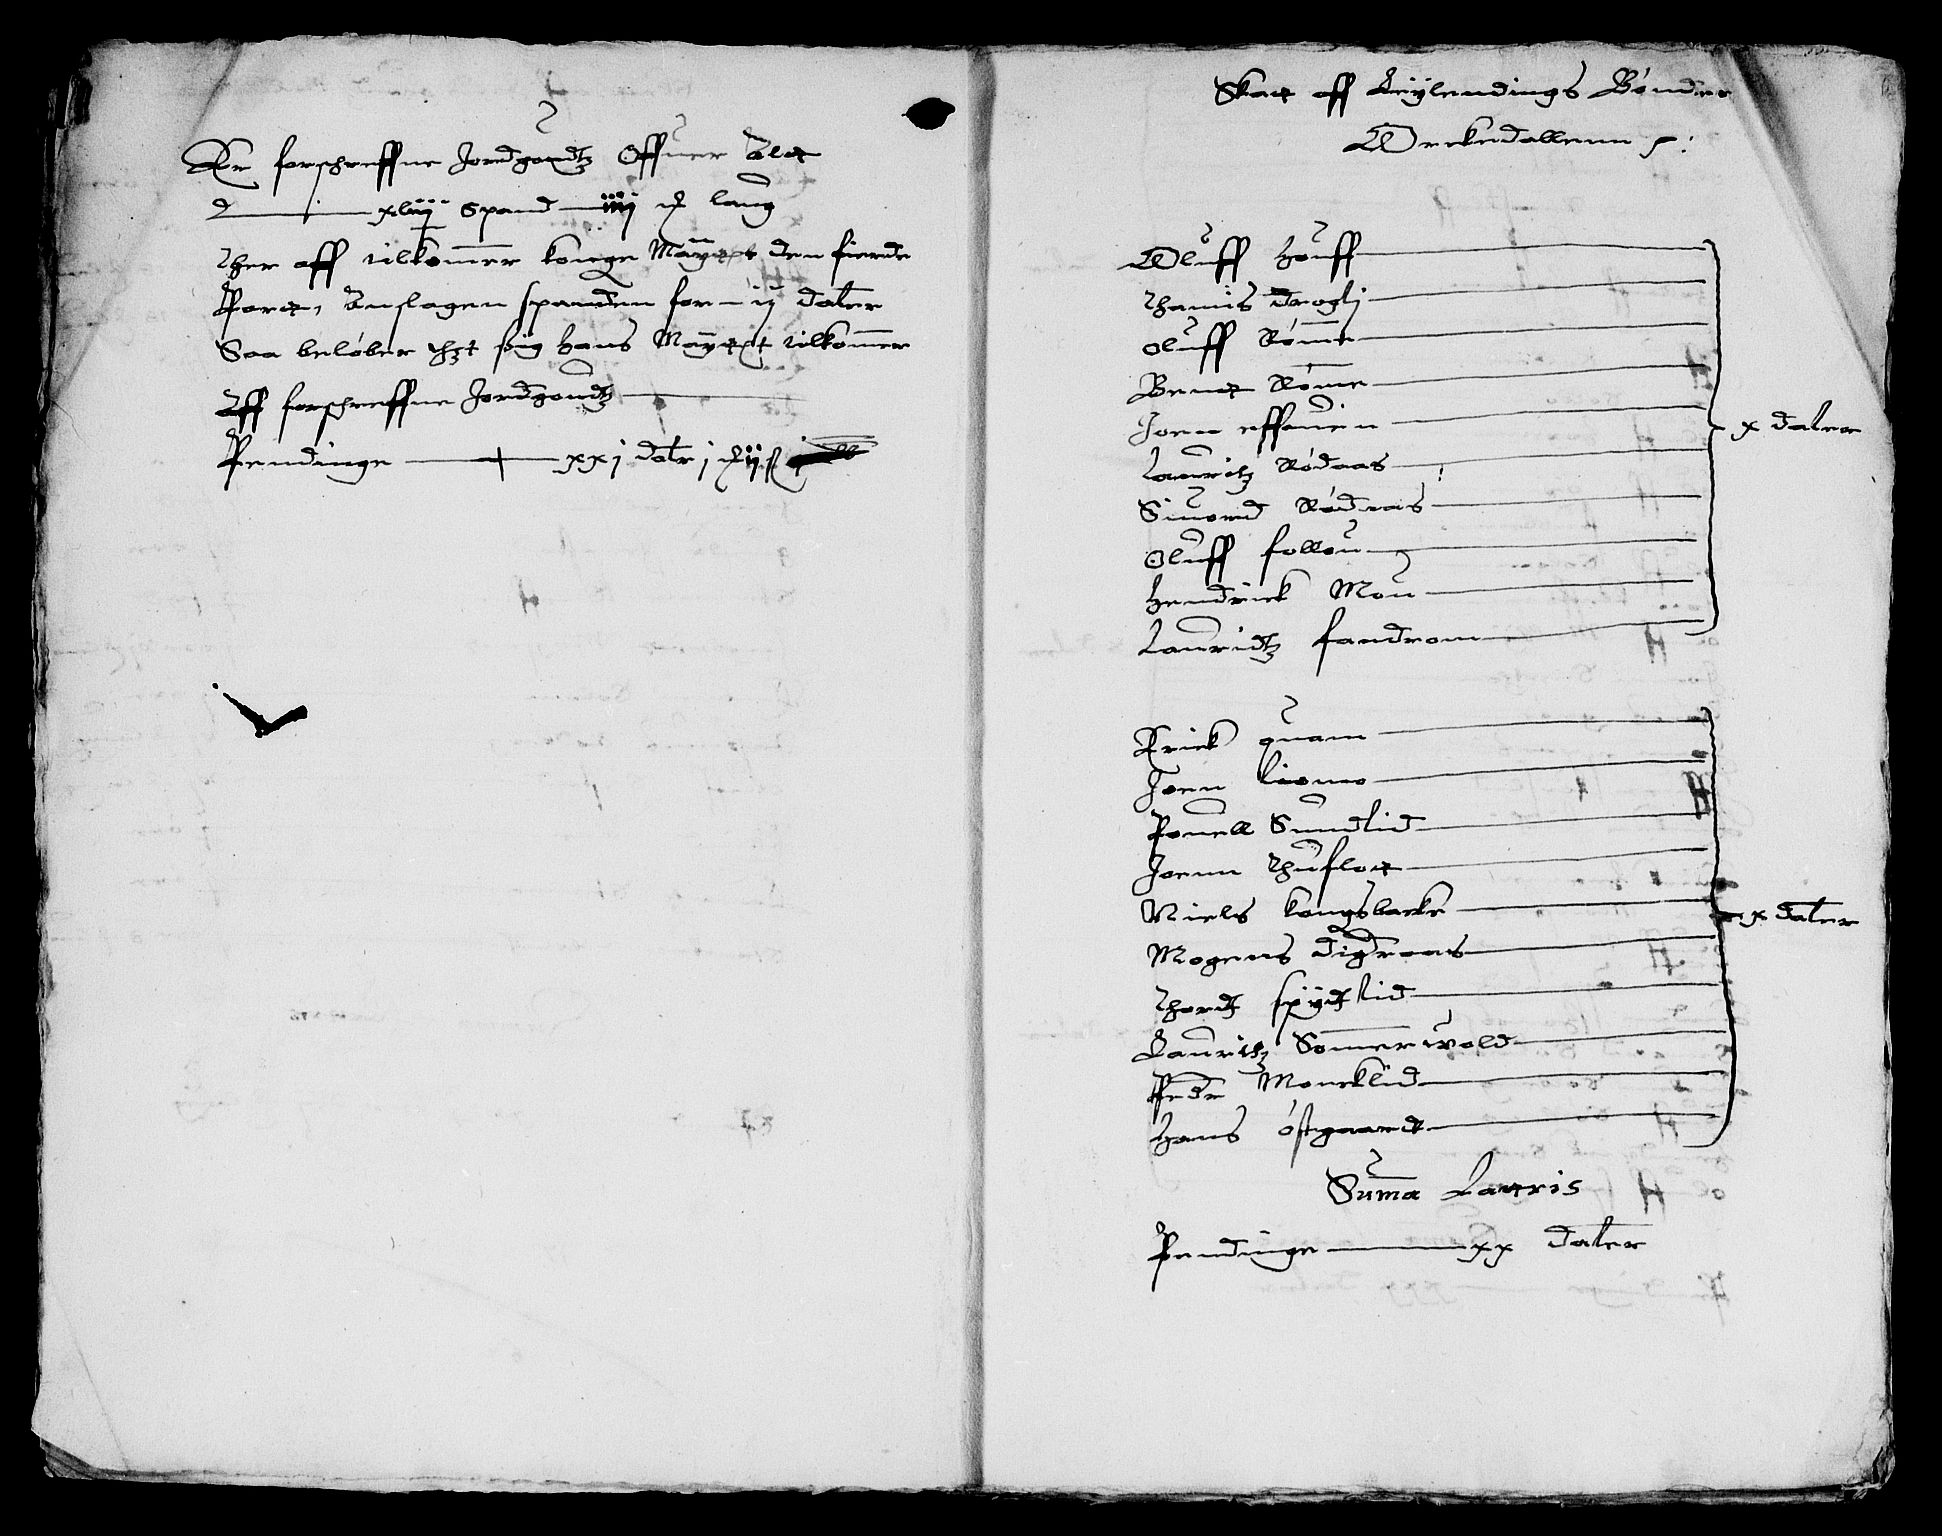 Er forschreffne Jordgoedtz Offuer Alt
xliij Spand iiij laug
Ther aff tilkommer konge Maytt den fierde
Part, Anslagen spanden for ij daler
Saa beløber thet sig hans Maytt tilkommer
aff forschreffne Jordgoedtz
Pendinge xxj daler j
Skat aff Leylendings Bønder
Orckedallenn
Oluff Houff
Thamis Drogli
Oluff Rømme
Bent Rømme
Joen
Lauritz Rødaas
Siuord Rødraas
Oluff follou
Hendrick Mou
Lauridtz fandrom
x daler
Erick quam
Joen Liomo
Pouell Sundlid
Joenn Thuflot
Niels kongsbacke
Mogens Digraas
Thordt spydtlid
Lauritz Sommerwold
Peder Moucklid
Hans østgaardt
x daler
Suma Lateris
Pendinge xx daler